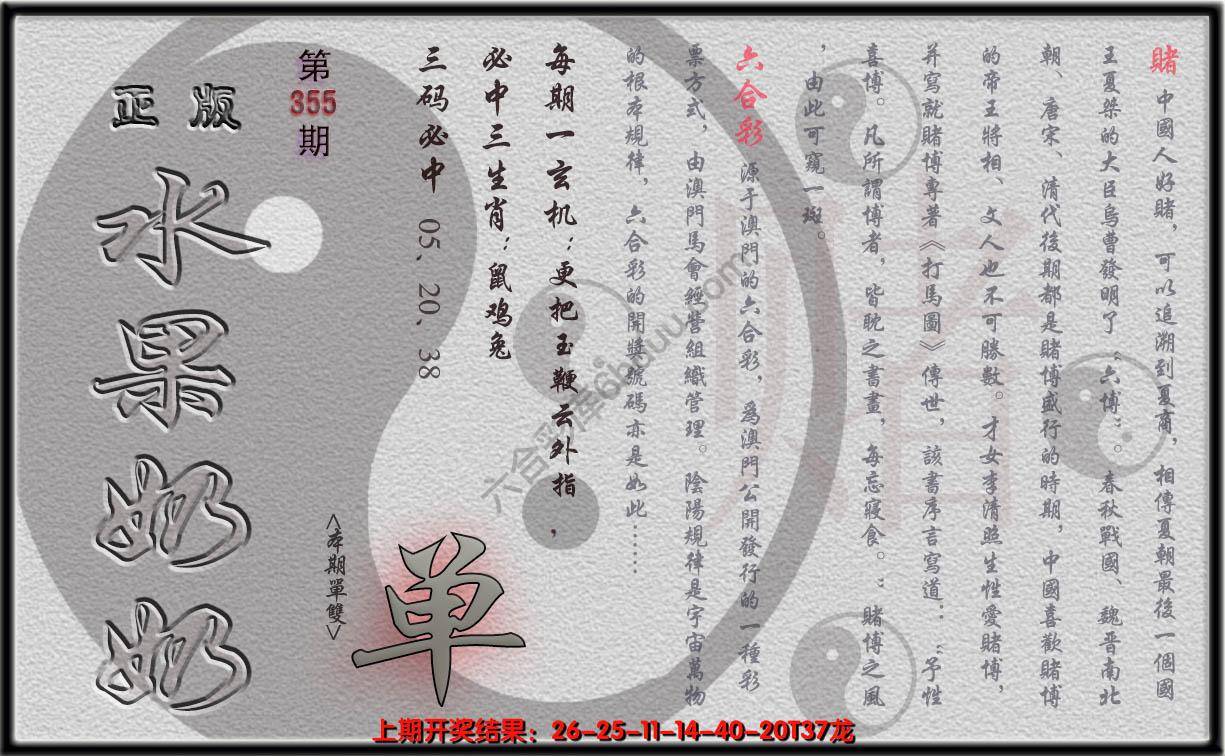 賭 中國人好賭，可以追溯到夏商，相傳夏朝最後一個國
王夏桀的大臣烏曹發明了“六博”。春秋戰國、魏晋南北
朝、唐宋、清代後期都是賭博盛行的時期，中國喜歡賭博
的帝王將相、文人也不可勝數。才女李清照生性愛賭博，
并寫就賭博專著《打馬圖》傳世，該書序言寫道：“予性
喜博。凡所謂博者，皆耽之書畫，每忘寢食。”賭博之風
，由此可窺一斑。
六合彩 源于澳門的六合彩，爲澳門公開發行的一種彩
票方式，由澳門馬會經營組織管理。陰陽規律是宇宙萬物
的根本規律，六合彩的開獎號碼亦是如此……
每期一玄机：更把玉鞭云外指，
必中三生肖：鼠鸡兔
三码必中 05、20、38
第355期
正版
水果奶奶
<本期單雙>
单
賭
六合彩库6huuu.com
上期开奖结果：26-25-11-14-40-20T37龙